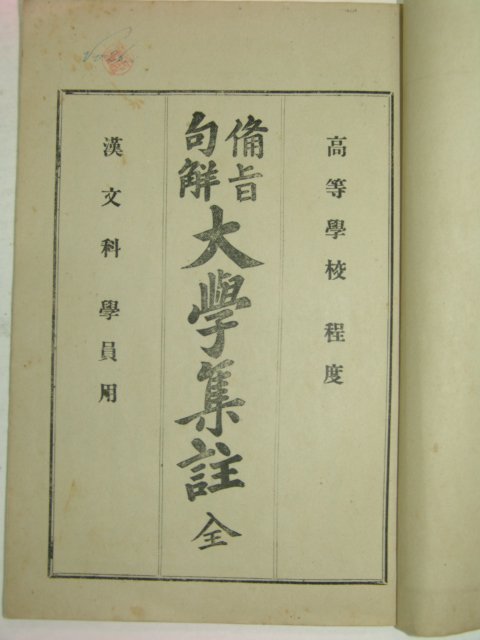 高等學校 程度
備旨
句解
大學集註 全
漢文科 學員用